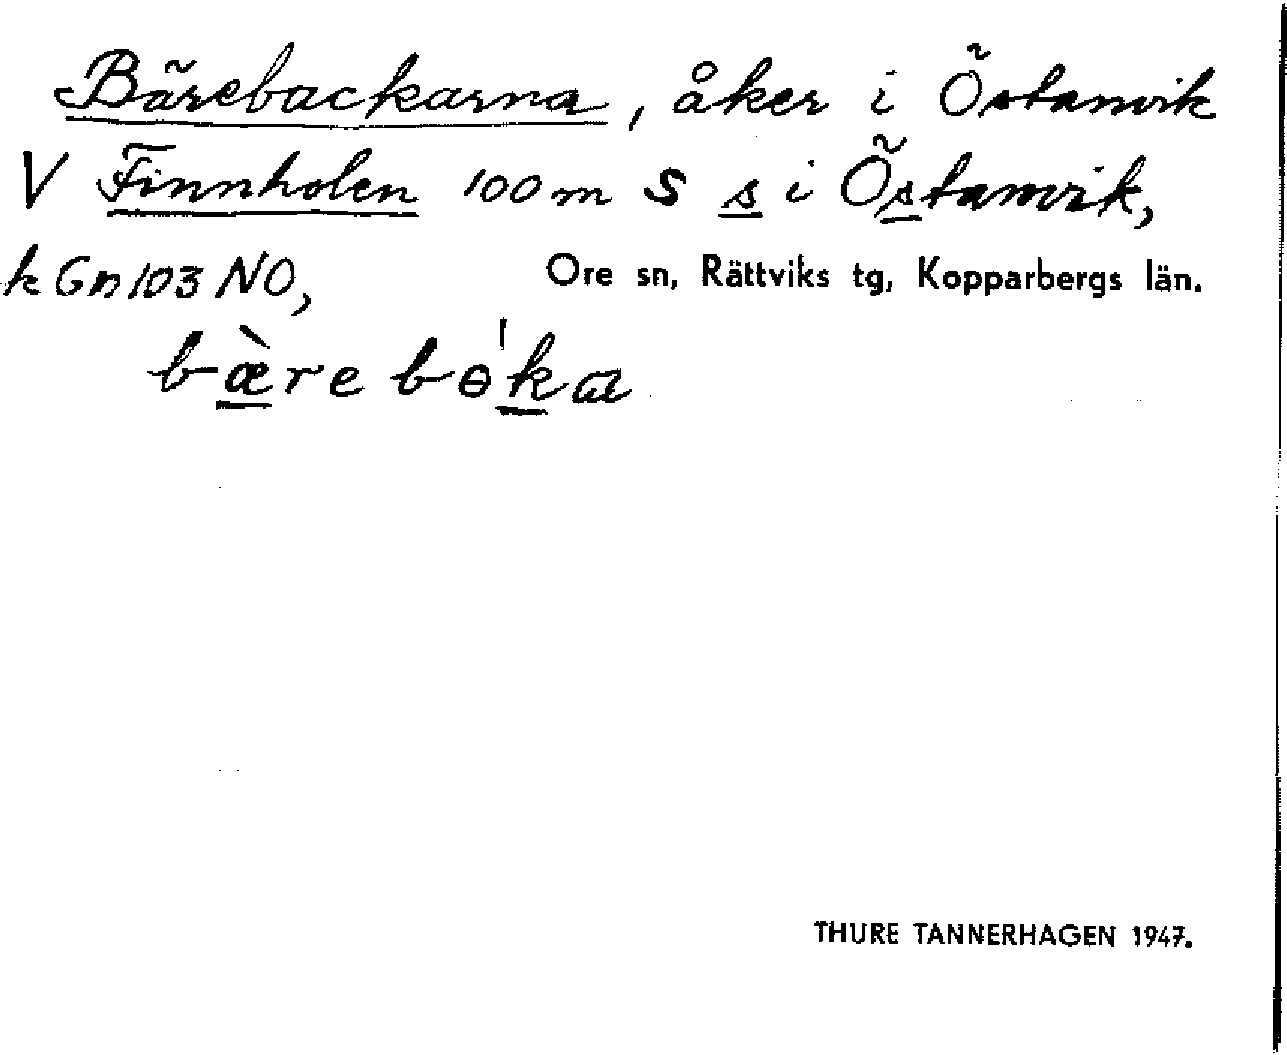 Bärebackarna, åker i Östanvik
V Finnholen 100 m S s i Östanvik,
k Gn 103 NO, Ore sn, Rättviks tg, Kopparbergs län.
bæ̀re bɵ'ka
THURE TANNERHAGEN 1947.